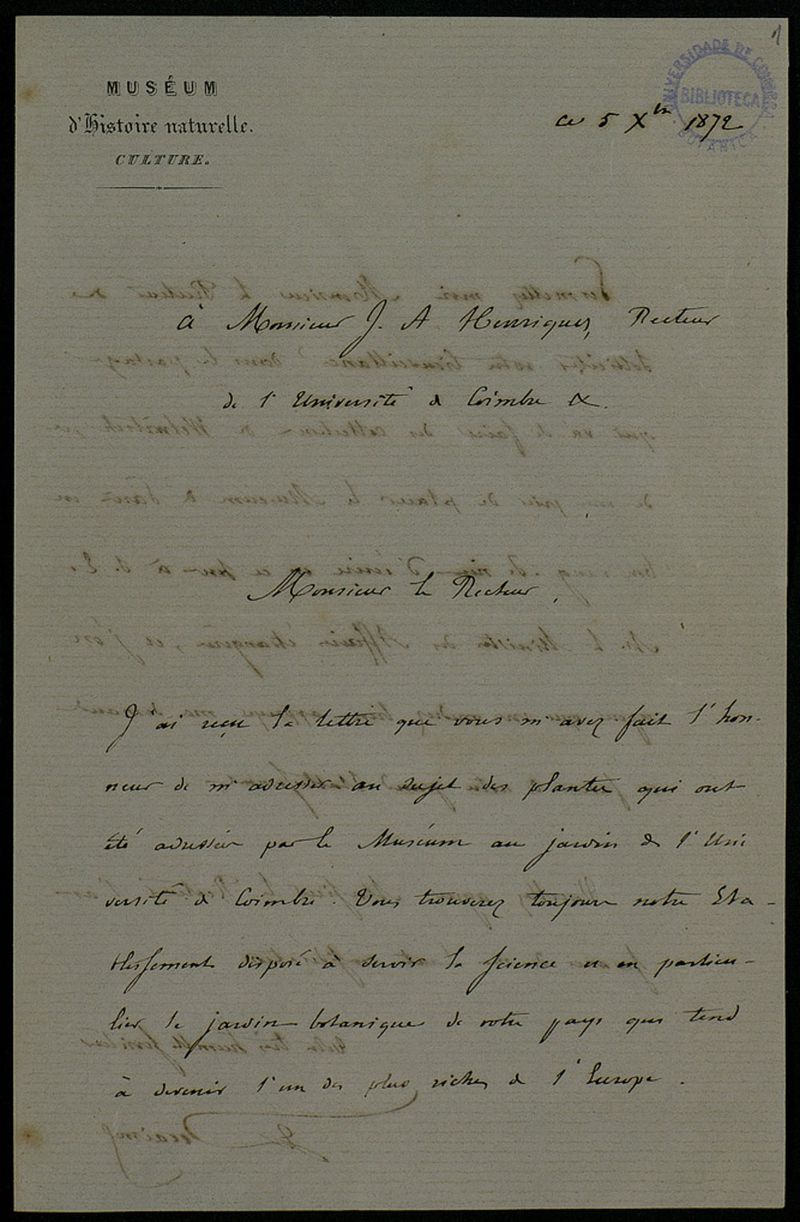 1
UNIVERSIDADE DE COIMBRA
BIBLIOTECA
BOTANICA
MUSÉUM
d'Histoire naturelle.
CULTURE.
ce 5 Xbre 1872
à Monsieur J. A Henriques, Recteur
de l'Université de Coimbre &.
Monsieur le Recteur,
J'ai reçu la lettre que vous m'avez fait l'hon-
neur de m'adresser au sujet des plantes qui ont
été adressées par le Muséum au jardin de l'Uni
versité de Coimbre. Vous trouverez toujours notre Eta-
blissement disposé à servir la Science et en particu-
lier le jardin botanique de votre pays qui tend
à devenir l'un des plus riches de l'Europe.